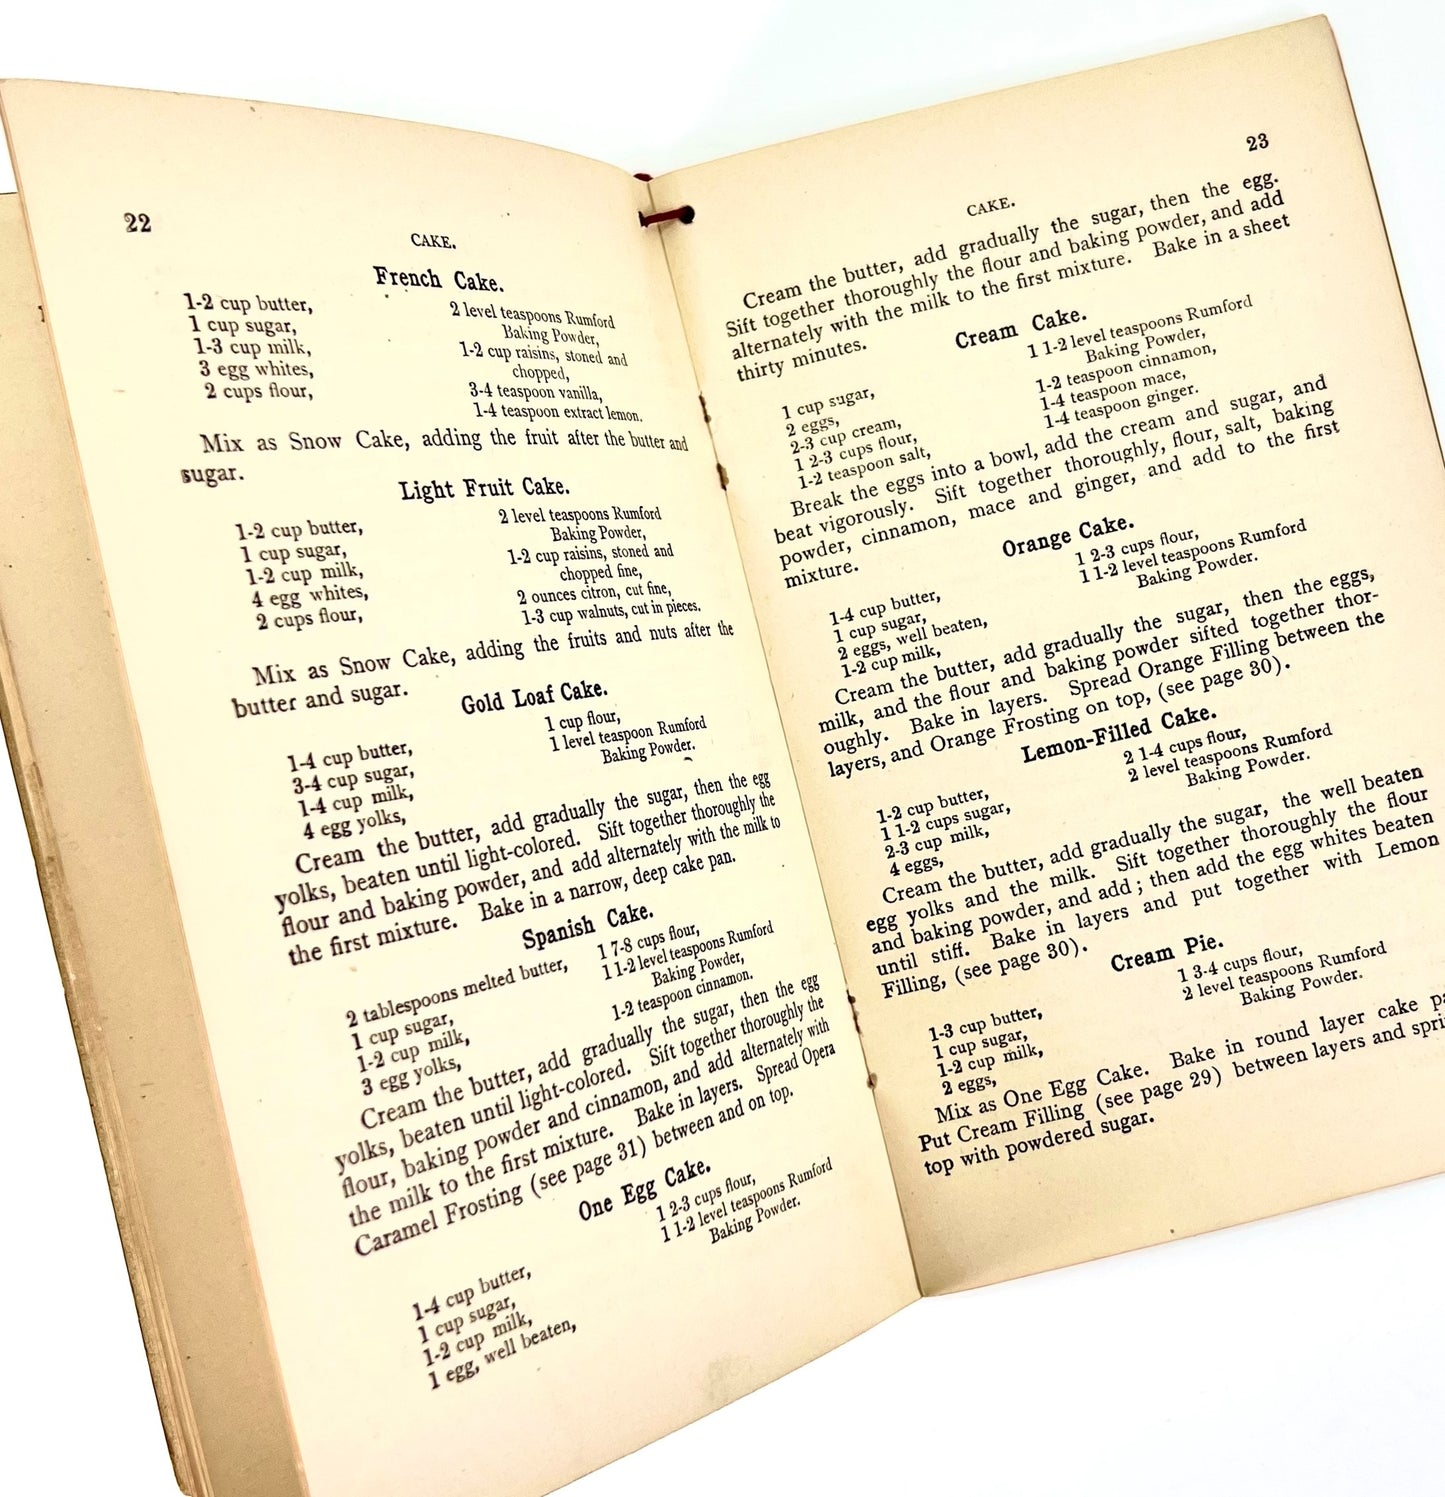 22
CAKE.
French Cake.
1-2 cup butter,
1 cup sugar,
1-3 cup milk,
3 egg whites,
2 cups flour,
2 level teaspoons Rumford
Baking Powder,
1-2 cup raisins, stoned and
chopped,
3-4 teaspoon vanilla,
1-4 teaspoon extract lemon.
Mix as Snow Cake, adding the fruit after the butter and
sugar.
Light Fruit Cake.
1-2 cup butter,
1 cup sugar,
1-2 cup milk,
4 egg whites,
2 cups flour,
2 level teaspoons Rumford
Baking Powder,
1-2 cup raisins, stoned and
chopped fine,
2 ounces citron, cut fine,
1-3 cup walnuts, cut in pieces.
Mix as Snow Cake, adding the fruits and nuts after the
butter and sugar.
Gold Loaf Cake.
1-4 cup butter,
3-4 cup sugar,
1-4 cup milk,
4 egg yolks,
1 cup flour,
1 level teaspoon Rumford
Baking Powder.
Cream the butter, add gradually the sugar, then the egg
yolks, beaten until light-colored. Sift together thoroughly the
flour and baking powder, and add alternately with the milk to
the first mixture. Bake in a narrow, deep cake pan.
Spanish Cake.
2 tablespoons melted butter,
1 cup sugar,
1-2 cup milk,
3 egg yolks,
1 7-8 cups flour,
1 1-2 level teaspoons Rumford
Baking Powder,
1-2 teaspoon cinnamon.
Cream the butter, add gradually the sugar, then the egg
yolks, beaten until light-colored. Sift together thoroughly the
flour, baking powder and cinnamon, and add alternately with
the milk to the first mixture. Bake in layers. Spread Opera
Caramel Frosting (see page 31) between and on top.
One Egg Cake.
1-4 cup butter,
1 cup sugar,
1-2 cup milk,
1 egg, well beaten,
1 2-3 cups flour,
1 1-2 level teaspoons Rumford
Baking Powder.
23
CAKE.
Cream the butter, add gradually the sugar, then the egg.
Sift together thoroughly the flour and baking powder, and add
alternately with the milk to the first mixture. Bake in a sheet
thirty minutes.
Cream Cake.
1 cup sugar,
2 eggs,
2-3 cup cream,
1 2-3 cups flour,
1-2 teaspoon salt,
1 1-2 level teaspoons Rumford
Baking Powder,
1-2 teaspoon cinnamon,
1-4 teaspoon mace,
1-4 teaspoon ginger.
Break the eggs into a bowl, add the cream and sugar, and
beat vigorously. Sift together thoroughly, flour, salt, baking
powder, cinnamon, mace and ginger, and add to the first
mixture.
Orange Cake.
1-4 cup butter,
1 cup sugar,
2 eggs, well beaten,
1-2 cup milk,
1 2-3 cups flour,
1 1-2 level teaspoons Rumford
Baking Powder.
Cream the butter, add gradually the sugar, then the eggs,
milk, and the flour and baking powder sifted together thor-
oughly. Bake in layers. Spread Orange Filling between the
layers, and Orange Frosting on top, (see page 30).
Lemon-Filled Cake.
1-2 cup butter,
1 1-2 cups sugar,
2-3 cup milk,
4 eggs,
2 1-4 cups flour,
2 level teaspoons Rumford
Baking Powder.
Cream the butter, add gradually the sugar, the well beaten
egg yolks and the milk. Sift together thoroughly the flour
and baking powder, and add; then add the egg whites beaten
until stiff. Bake in layers and put together with Lemon
Filling, (see page 30).
Cream Pie.
1-3 cup butter,
1 cup sugar,
1-2 cup milk,
2 eggs,
1 3-4 cups flour,
2 level teaspoons Rumford
Baking Powder.
Mix as One Egg Cake. Bake in round layer cake
Put Cream Filling (see page 29) between layers and
top with powdered sugar.